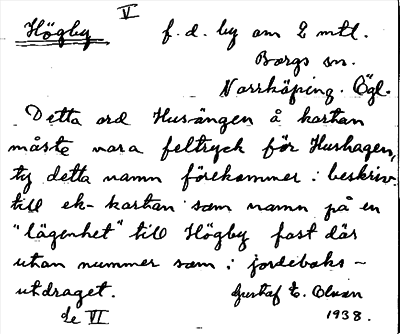 V
Högby f. d. by om 2 mtl.
Borgs sn.
Norrköping. Ögl.
Detta ord Husängen å kartan
måste vara feltryck för Hushagen,
ty detta namn förekommer i beskriv.
till ek-kartan som namn på en
"lägenhet" till Högby fast där
utan nummer som i jordeboks-
utdraget. Gustaf E. Olsson
se VI 1938.